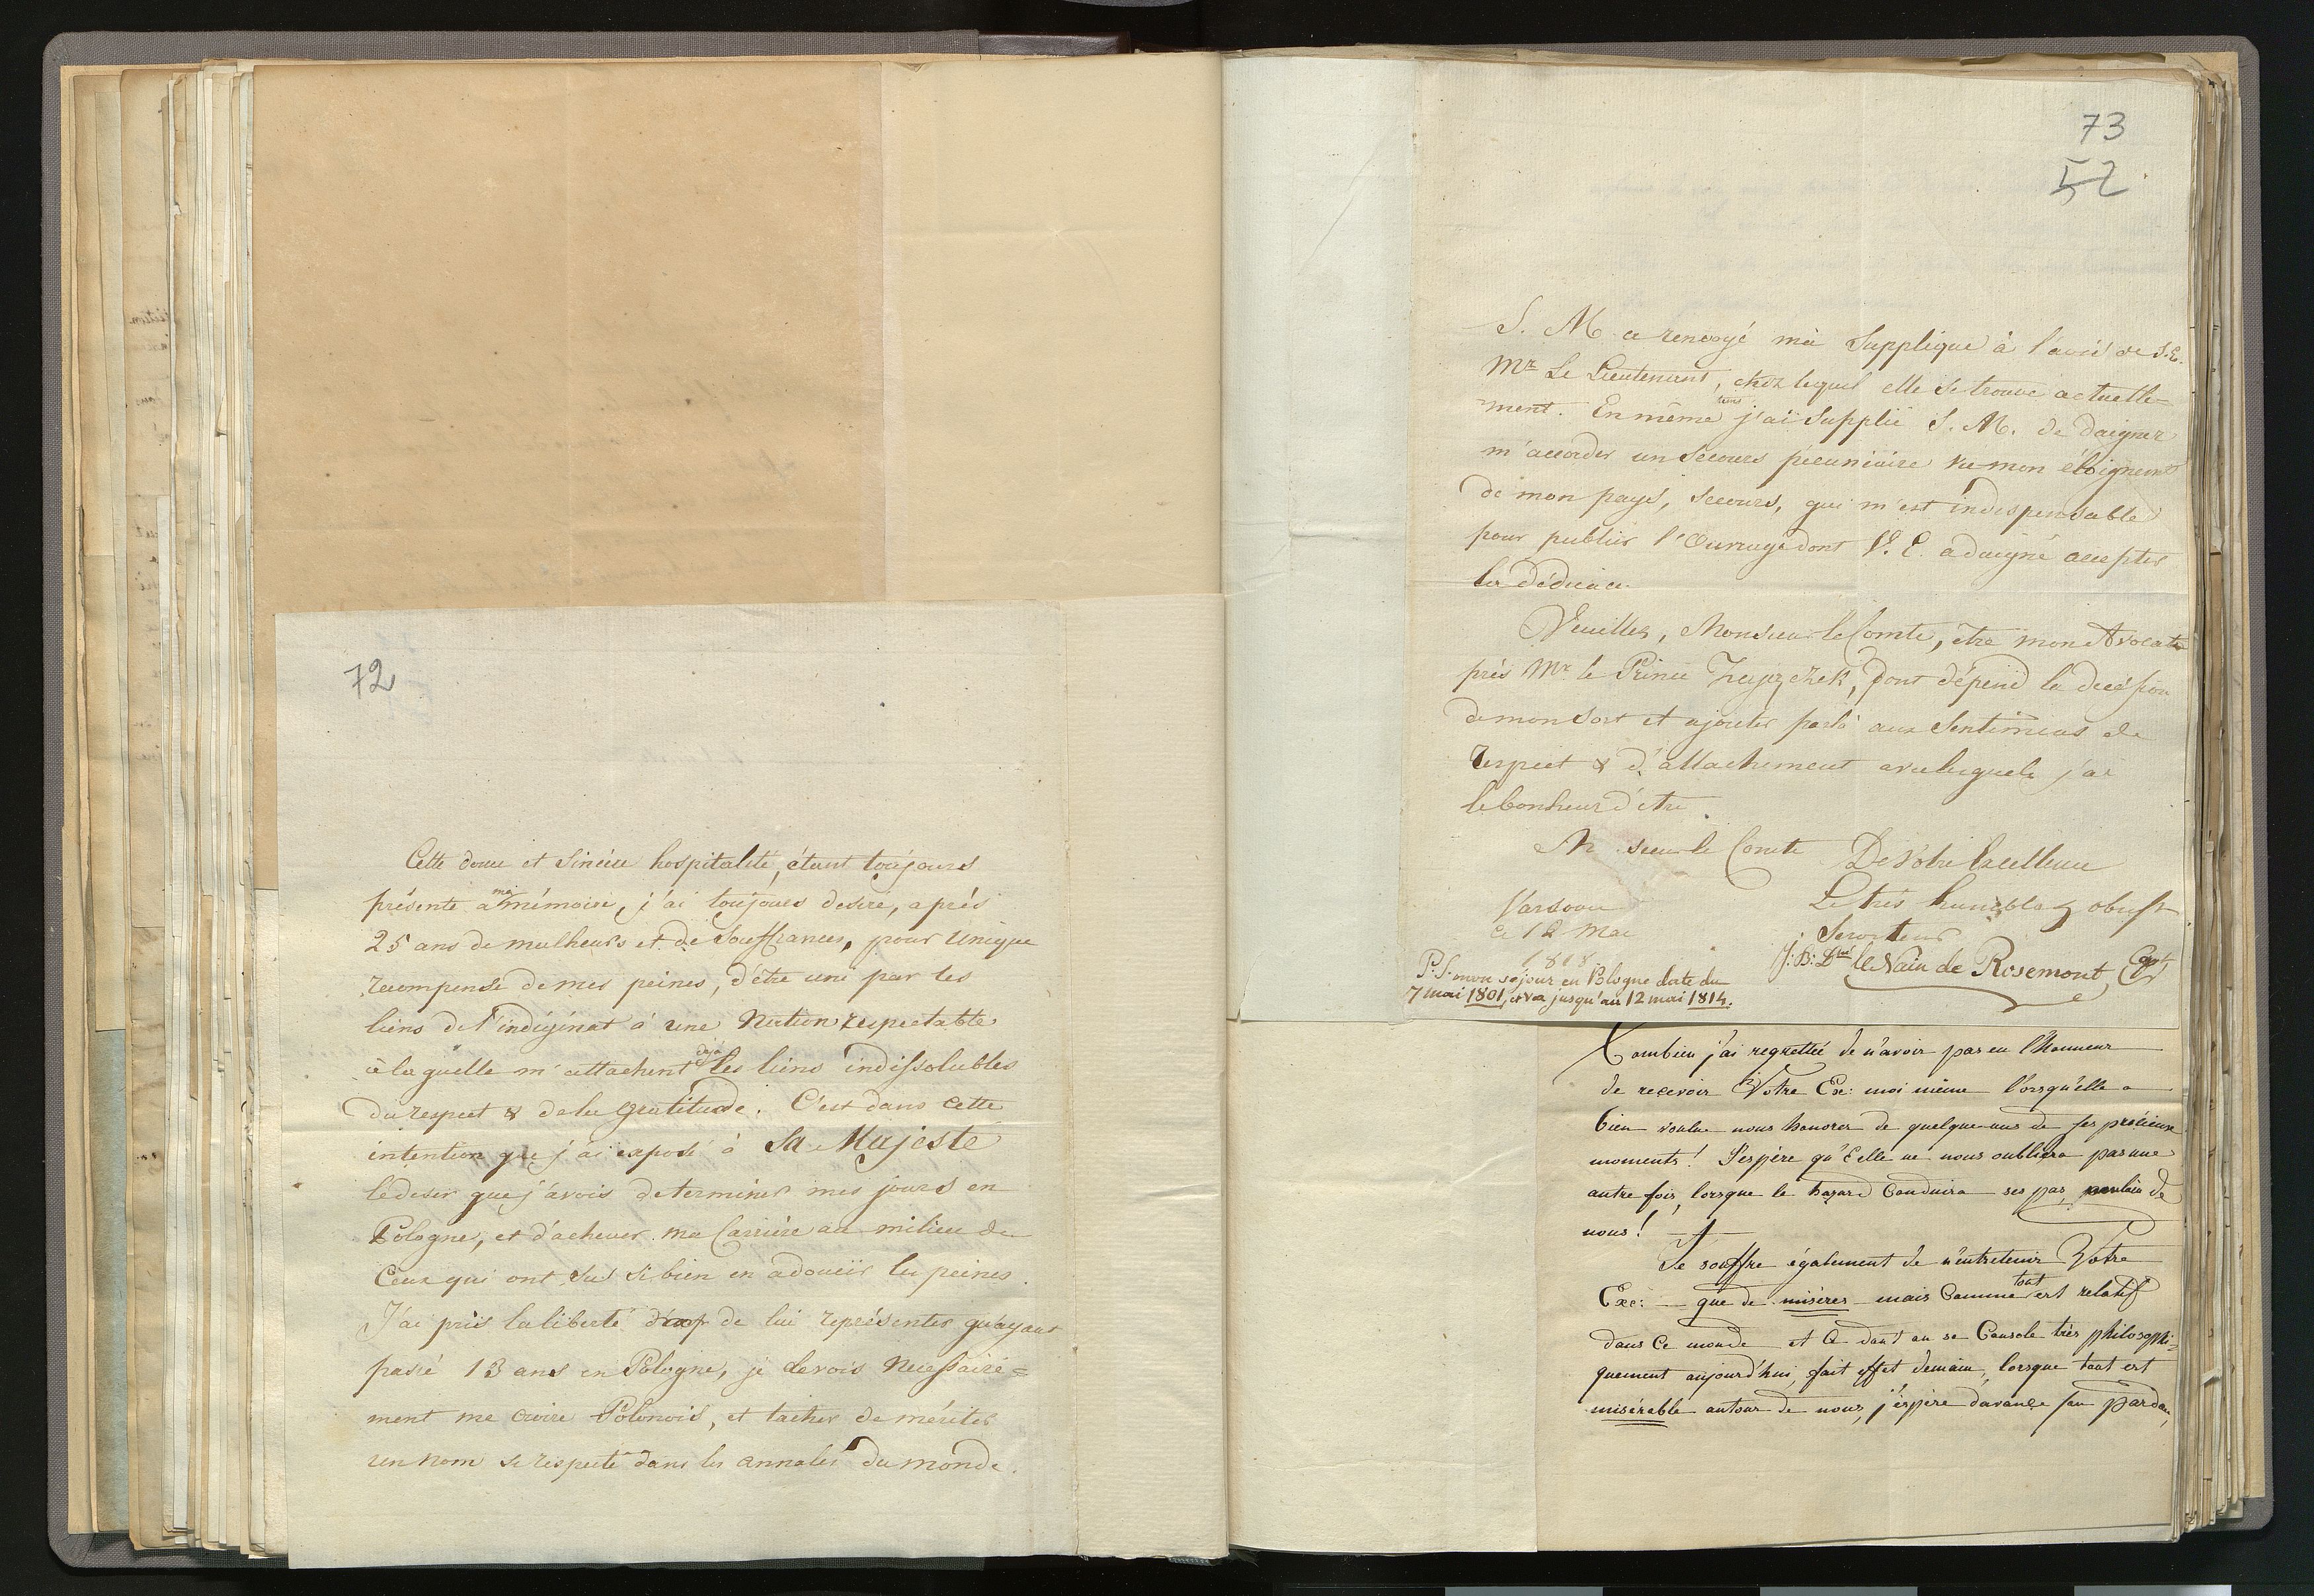 72
Cette douce et sincére hospitalité, étant toujours
présente a ma mémoire, j'ai toujours desiré, aprés
25 ans de malheurs et de souffrances, pour unique
recompense de mes peines, d'être uni par les
liens de l'indigénat à une Nation respectable
à laquelle m'attachent déja les liens indissolubles
du respect & de la gratitude. C'est dans cette
intention que j'ai exposé à Sa Majesté
le desir que j'avois de terminer mes jours en
Pologne, et d'achever ma Carriére au milieu de
Ceux qui ont sus si bien en adoucir les peines.
J'ai pris la liberté de lui représenter qu'ayant
passé 13 ans en Pologne, je devois Necessaire=
ment me croire Polonois, et tacher de mériter
un nom si respecté dans les annales du monde.
73
52
S. M. a renvoyé ma Supplique à l'avis de S.E.
Mr Le Lieutenant, chez lequel elle se trouve actuelle=
ment. En même tems j'ai supplié S. M. de daigner
m'accorder un Secours pécuniaire vu mon éloignemt
de mon pays, Secours, qui m'est indispensable
pour publier l'Ouvrage dont V. E. a daigné accepter
la dédicace.
Veuillez, Monsieur le Comte, être mon Avocat
près Mr le Prince Zayączek, dont dépend la décision
de mon sort et ajouter par là aux Sentimens de
respect & d'attachement avec lesquels j'ai
le bonheur d'être.
M sieur le Comte De Votre Excellence
Le très humble & obeisst
Serviteur
Varsovie
ce 12 Mai
1818.
J: B: Dque le Nain de Rosemont
P. S. mon séjour en Pologne date du
7 mai 1801, et va jusqu'au 12 mai 1814.
Combien j'ai regrettée de n'avoir pas eu l'Honneur
de recevoir Votre Exc: moi même lorsqu'elle a
bien voulue nous honorer de quelques-uns de ses précieux
moments! J'espère qu'Elle ne nous oubliera pas une
autre fois, lorsque le hazard Conduira ses pas, de
nous!
Je souffre également de n'entretenir Votre
Exc: — que de misères — mais Comme tout est relatif
dans Ce monde et Ce dont on se Console très philosophi=
quement aujourd'hui, fait effet demain, lorsque tout est
misérable autour de nous, j'espère d'avance son pardon,